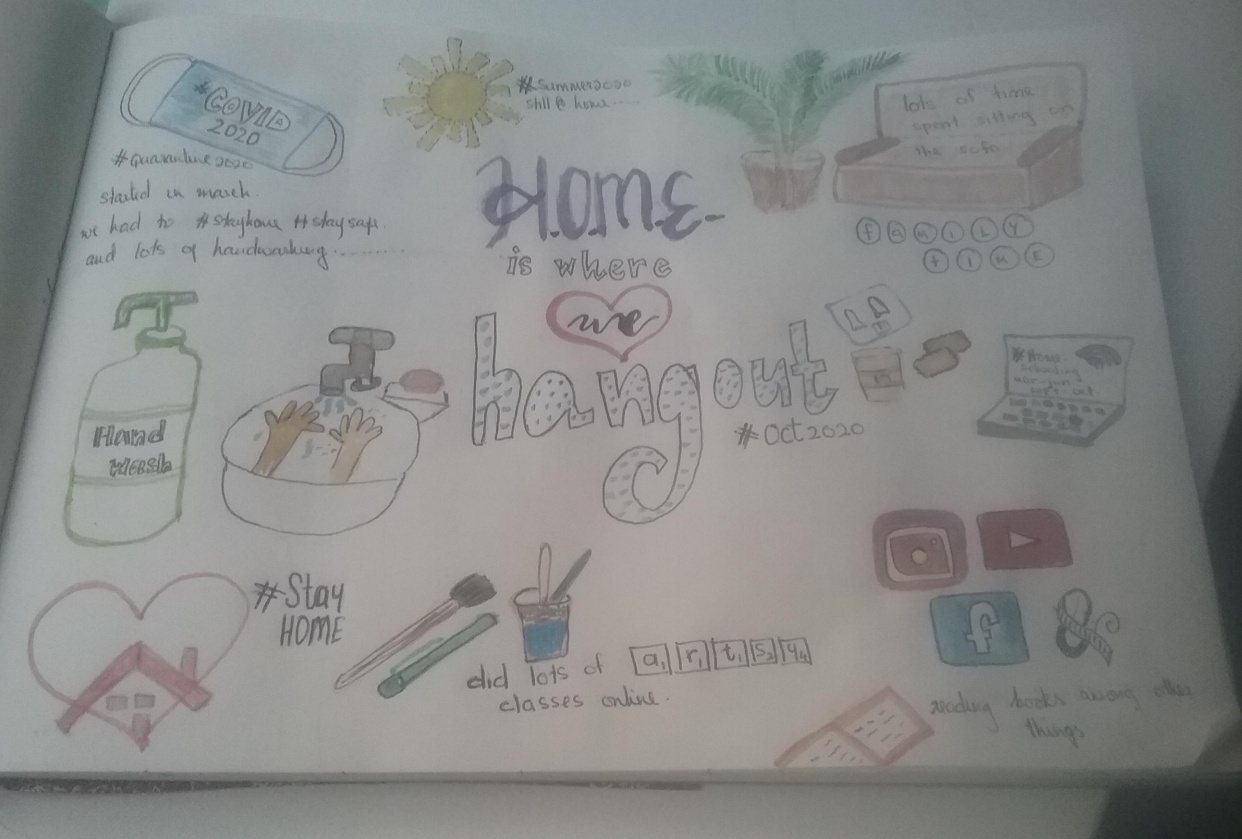 #COVID
2020
#Quarantine2020
started in march.
we had to #stayhome #staysafe
and lots of handwashing...........
#Summer2020
still @ home......
lots of time
spent sitting on
the sofa
family
time
Home
is where
we
hang out
#Oct2020
#Home-
Schooling
Hand
Wash
#Stay
HOME
did lots of a1 r1 t1 s2 y4
classes online.
f
&
reading books among other
things